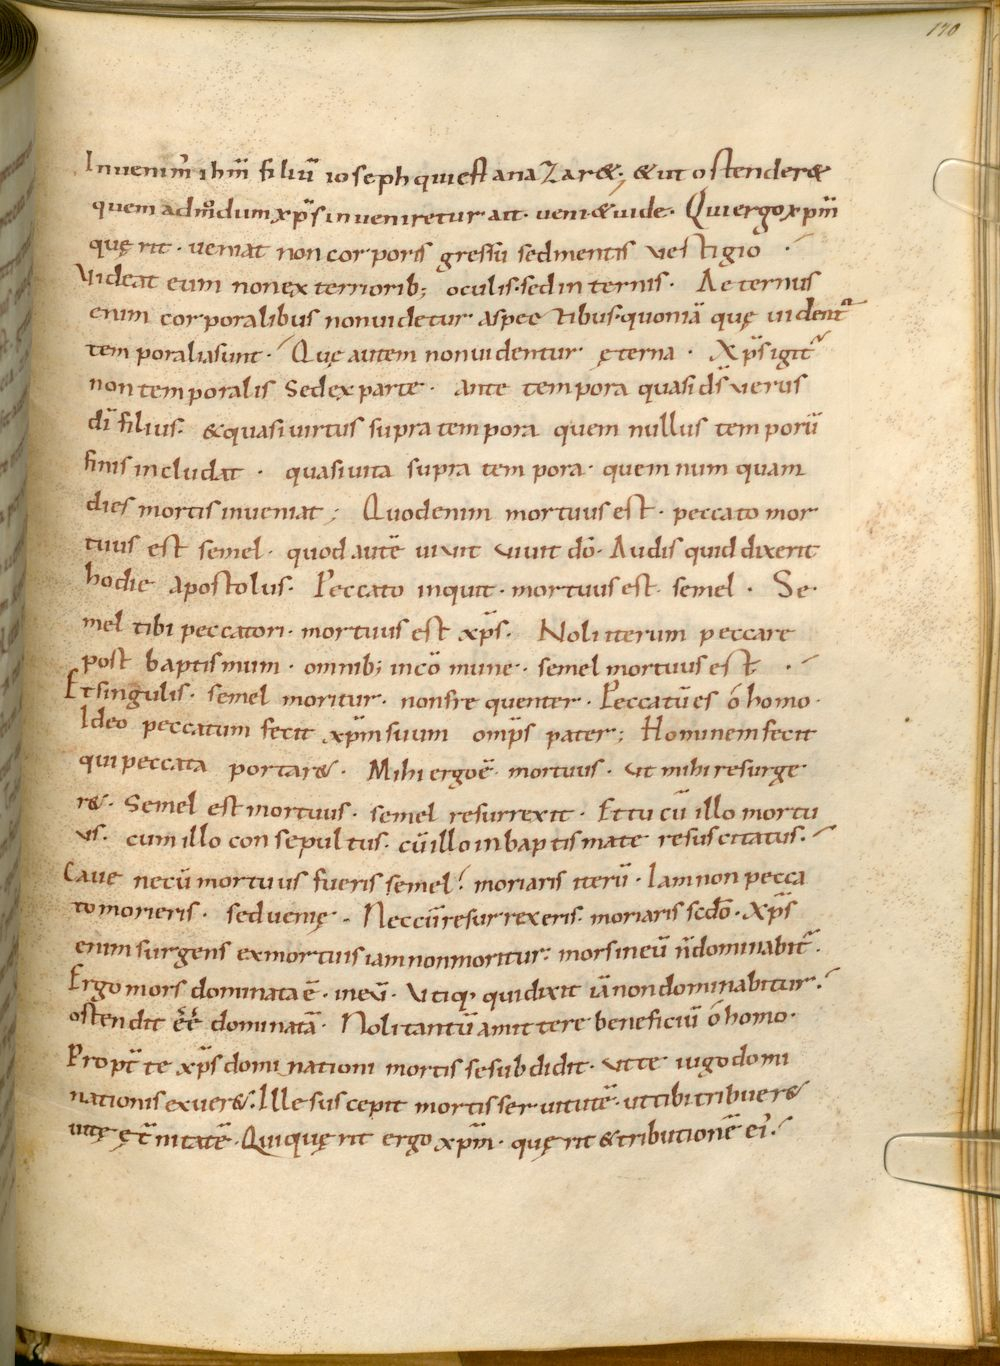 170
Inuenim᷒ ih̅m filiū ioseph qui est a nazar&; & ut ostender&
quem admōdum xp̅s inueniretur ait · ueni & uide · Qui ergo xp̅m
quęrit · ueniat non corporis gressu sed mentis uestigio ·
Videat eum non exteriorib; oculis · sed internis · Aeternus
enim corporalibus non uidetur aspectibus · quoniā quę uident᷑
temporalia sunt · Quę autem non uidentur ęterna · Xp̅s igit᷑
non temporalis sed ex parte · ante tempora quasi ds̅ uerus
di̅ filius · & quasi uirtus supra tempora quem nullus temporū
finis includat · quasi uita supra tempora · quem numquam
dies mortis inueniat; Quod enim mortuus est · peccato mor
tuus est semel · quod autē uiuit uiuit dō · Audis quid dixerit
hodie apostolus · Peccato inquit · mortuus est semel · Se
mel tibi peccatori · mortuus est xp̅s · Noli iterum peccare
post baptismum · omnib; in cōmune · semel mortuus est ·
Et singulis · semel moritur · non frequenter · Peccatū es ó homo ·
Ideo peccatum fecit xp̅m suum omp̅s pater; Hominem fecit
qui peccata portar& · Mihi ergo ē mortuus · ut mihi resurge
r& · Semel est mortuus · semel resurrexit · Et tu cū illo mortu
us · cum illo consepultus · cū illo in baptismate resuscitatus ·
Caue ne cū mortuus fueris semel · moriaris iterū · Iam non pecca
to morieris · sed uenię · Ne cū resurrexeris · moriaris scdo̅ · Xp̅s
enim surgens ex mortuis iam non moritur · mors in eū n̅ dominabit᷑ ·
Ergo mors dominata ē · in eū · Vtiq· qui dixit iā non dominabitur ·
ostendit ēē dominatā · Noli tantū amittere beneficiū ó homo ·
Propt̅ te xp̅s dominationi mortis se subdidit · ut te iugo domi
nationis exuer& · Ille suscepit mortis seruitutē · ut tibi tribuer&
uitę ęt̅nitatē · Qui quęrit ergo xp̅m · quęrit & tributionē ei᷒ ·